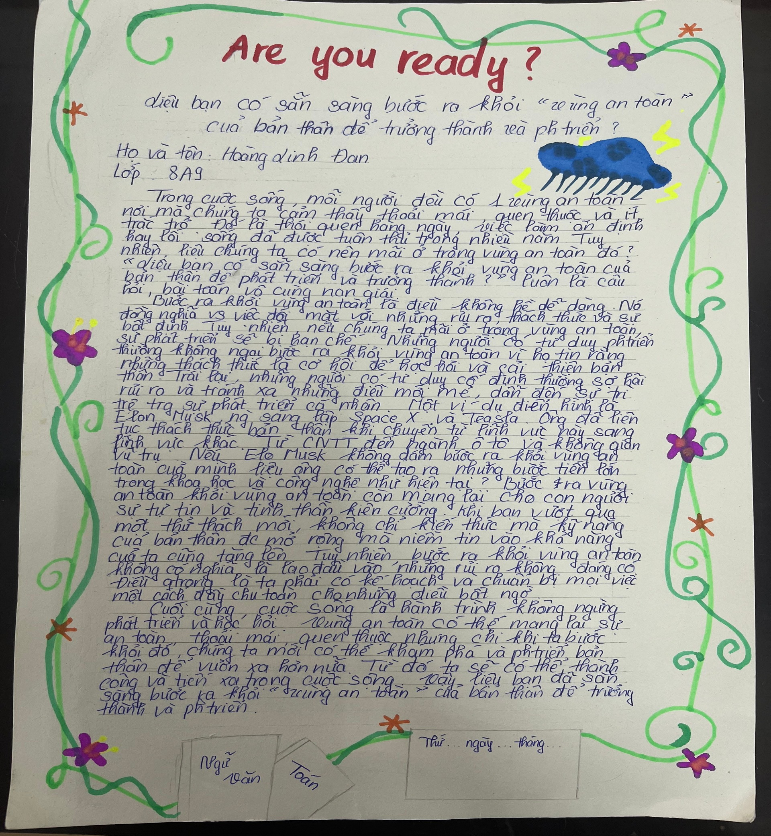 Are you ready ?
diệu bạn có sẵn sàng bước ra khỏi "vùng an toàn"
của bản thân để trưởng thành và ph triển ?
Họ và tên : Hoàng Linh Đan
Lớp : 8A9
Trong cuộc sống, mỗi người đều có 1 vùng an toàn -
nơi mà chúng ta cảm thấy thoải mái quen thuộc và ít
trắc trở Đó là thói quen hàng ngày, việc làm ổn định
hay lối sống đã được tuân thủ trong nhiều năm Tuy
nhiên, liệu chúng ta có nên mãi ở trong vùng an toàn đó?
"diệu bạn có sẵn sàng bước ra khỏi vùng an toàn của
bản thân để phát triển và trưởng thành ?" luôn là câu
hỏi, bài toán vô cùng nan giải
Bước ra khỏi vùng an toàn là điều không hề dễ dàng. Nó
đồng nghĩa vs việc đối mặt với những rủi ro thách thức và sự
bất định Tuy nhiên nếu chúng ta mãi ở trong vùng an toàn,
sự phát triển sẽ bị hạn chế. Những người có tư duy ph triển
thường không ngại bước ra khỏi vùng an toàn vì họ tin rằng
những thách thức là cơ hội để học hỏi và cải thiện bản
thân Trái lại, những người có tư duy cố định thường sợ hãi
rủi ro và tránh xa những điều mới mẻ, dẫn đến sự trì
trệ trg sự phát triển cá nhân. Một ví dụ điển hình là
Elon Musk, ng sáng lập Space X và Tesla Ông đã liên
tục thách thức bản thân khi chuyển từ lĩnh vực này sang
lĩnh vực khác Từ CNTT đến ngành ô tô và không gian
vũ trụ Nếu Elo Musk không dám bước ra khỏi vùng an
toàn của mình liệu ông có thể tạo ra những bước tiến lớn
trong khoa học và công nghệ như hiện tại ? Bước ra vùng
an toàn khỏi vùng an toàn còn mang lại cho con người
sự tự tin và tinh thần kiên cường Khi bạn vượt qua
một thử thách mới không chỉ kiến thức mà kỹ năng
của bản thân đc mở rộng mà niềm tin vào khả năng
của ta cũng tăng lên Tuy nhiên bước ra khỏi vùng an toàn
không có nghĩa là lao đầu vào những rủi ro không đáng có
Điều quan trọng là ta phải có kế hoạch và chuẩn bị mọi việc
một cách đầy chu toàn cho những điều bất ngờ
Cuối cùng cuộc sống là hành trình không ngừng
phát triển và học hỏi Vùng an toàn có thể mang lại sự
an toàn, thoải mái quen thuộc nhưng chỉ khi ta bước
khỏi đó, chúng ta mới có thể khám phá và ph triển bản
thân để vươn xa hơn nữa Từ đó ta sẽ có thể thành
công và tiến xa trong cuộc sống. Vậy liệu bạn đã sẵn
sàng bước ra khỏi "vùng an toàn" của bản thân để trưởng
thành và ph triển .
Ngữ
văn
Toán
Thứ ... ngày ... tháng ...